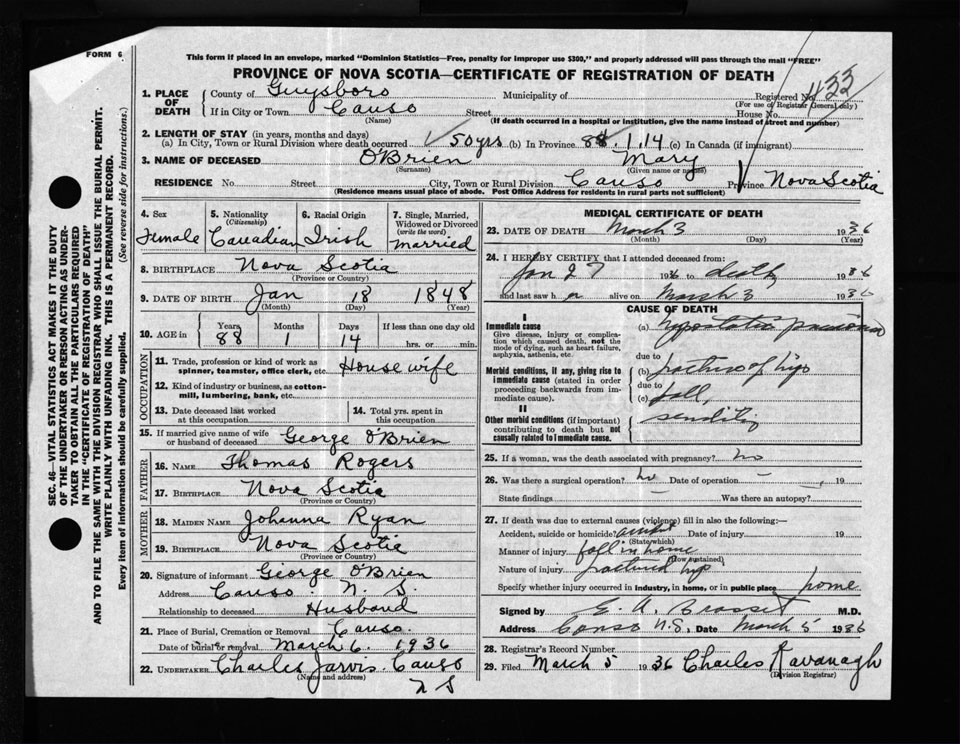 FORM 6
This form if placed in an envelope, marked "Dominion Statistics—Free, penalty for improper use $300," and properly addressed will pass through the mail "FREE"
PROVINCE OF NOVA SCOTIA—CERTIFICATE OF REGISTRATION OF DEATH
1. PLACE OF DEATH
County of Guysboro Municipality of Registered No. 433
(For use of Registrar General only)
If in City or Town Canso Street House No.
(Name) (If death occurred in a hospital or institution, give the name instead of street and number)
2. LENGTH OF STAY (in years, months and days)
(a) In City, Town or Rural Division where death occurred 50 yrs (b) In Province 88.1.14 (c) In Canada (if immigrant)
3. NAME OF DECEASED O'Brien Mary
(Surname) (Given name or names)
RESIDENCE No. Street City, Town or Rural Division Canso Province Nova Scotia
(Residence means usual place of abode. Post Office Address for residents in rural parts not sufficient)
SEC. 46—VITAL STATISTICS ACT MAKES IT THE DUTY
OF THE UNDERTAKER OR PERSON ACTING AS UNDER-
TAKER TO OBTAIN ALL THE PARTICULARS REQUIRED
IN THE "CERTIFICATE OF REGISTRATION OF DEATH"
AND TO FILE THE SAME WITH THE DIVISION REGISTRAR WHO SHALL ISSUE THE BURIAL PERMIT.
WRITE PLAINLY WITH UNFADING INK. THIS IS A PERMANENT RECORD.
Every item of information should be carefully supplied. (See reverse side for instructions.)
4. Sex
Female
5. Nationality
(Citizenship)
Canadian
6. Racial Origin
Irish
7. Single, Married, Widowed or Divorced
(write the word)
Married
8. BIRTHPLACE Nova Scotia
(Province or Country)
9. DATE OF BIRTH Jan 18 1848
(Month) (Day) (Year)
10. AGE in Years Months Days If less than one day old
88 1 14 hrs. or min.
OCCUPATION
11. Trade, profession or kind of work as
spinner, teamster, office clerk, etc. Housewife
12. Kind of industry or business, as cotton-
mill, lumbering, bank, etc.
13. Date deceased last worked
at this occupation
14. Total yrs. spent in
this occupation
15. If married give name of wife
or husband of deceased George O'Brien
FATHER
16. NAME Thomas Rogers
17. BIRTHPLACE Nova Scotia
(Province or Country)
MOTHER
18. MAIDEN NAME Johanna Ryan
19. BIRTHPLACE Nova Scotia
(Province or Country)
20. Signature of informant George O'Brien
Address Canso. N. S.
Relationship to deceased Husband
21. Place of Burial, Cremation or Removal Canso.
Date of burial or removal March 6. 1936
22. UNDERTAKER Charles Jarvis Canso
(Name and address)
N S
MEDICAL CERTIFICATE OF DEATH
23. DATE OF DEATH March 3 1936
(Month) (Day) (Year)
24. I HEREBY CERTIFY that I attended deceased from:
Jan 27 1936 to death 1936
and last saw her alive on March 3 1936
CAUSE OF DEATH
I
Immediate cause
Give disease, injury or complica-
tion which caused death, not the
mode of dying, such as heart failure,
asphyxia, asthenia, etc.
(a) Hypostatic pneumonia
due to
Morbid conditions, if any, giving rise to
immediate cause (stated in order
proceeding backwards from im-
mediate cause).
(b) fracture of hip
due to
(c) fall,
II
Other morbid conditions (if important)
contributing to death but not
causally related to immediate cause.
senility
25. If a woman, was the death associated with pregnancy? no
26. Was there a surgical operation? no Date of operation 19
State findings Was there an autopsy?
27. If death was due to external causes (violence) fill in also the following:
Accident, suicide or homicide? Date of injury 19
(State which)
Manner of injury fall in home
(How sustained)
Nature of injury fractured hip
Specify whether injury occurred in industry, in home, or in public place home
Signed by E. A. Brasset M.D.
Address Canso N.S. Date March 5 1936
28. Registrar's Record Number
29. Filed March 5 1936 Charles Kavanagh
(Division Registrar)